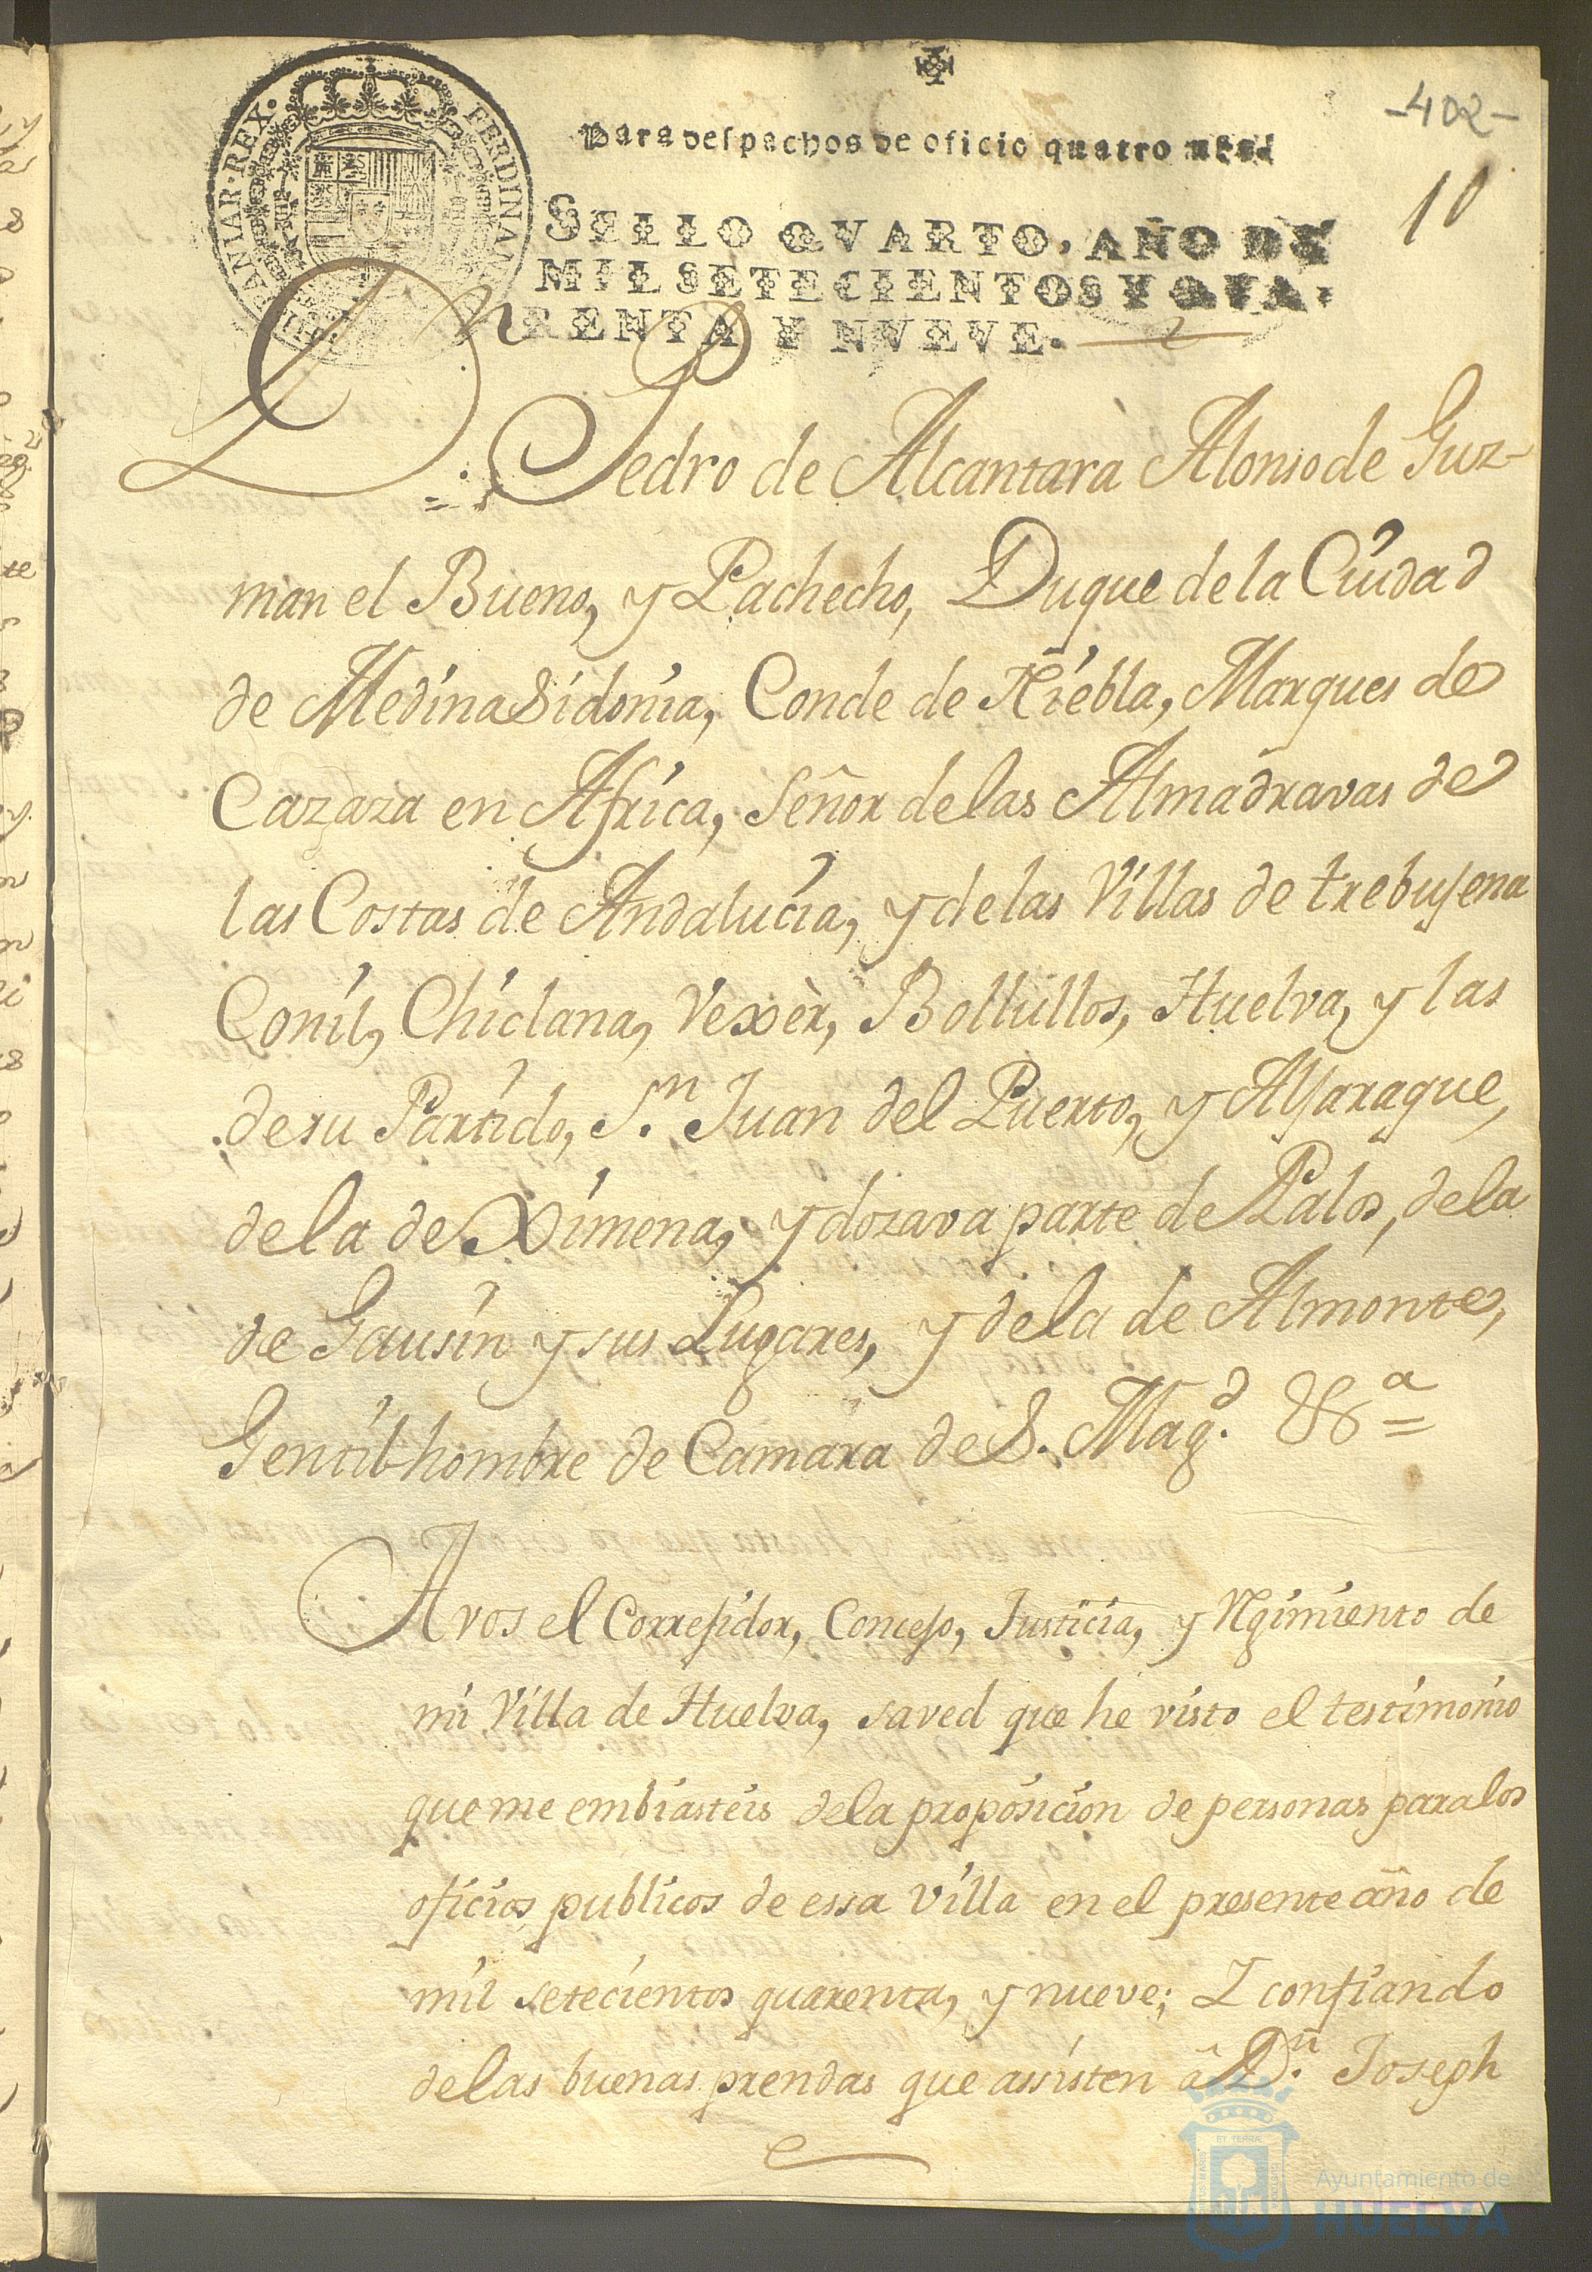 -402-
10
HISPANIAR·REX· FERDINAN
Para despachos de oficio quatro mrs.
SELLO QVARTO, AÑO DE
MIL SETECIENTOS Y QVA-
RENTA Y NVEVE.
Dn. Pedro de Alcantarà Alonso de Guz-
man el Bueno, y Pachecho, Duque de la Ciudad
de Medina Sidonia, Conde de Niebla, Marques de
Cazaza en Africa, Señor de las Almadravas de
las Costas de Andalucia, y de las Villas de trebujena
Conil, Chiclana, Vexèr, Bollullos, Huelva, y las
de su Partido, Sn. Juan del Puerto, y Aljaraque,
de la de Ximena, y dozava parte de Palos, de la
de Gausin y sus Lugares, y de la de Almonte,
Gentilhombre de Camara de S. Magd. &a=
A vos el Correjidor, Concejo, Justicia, y Rgimiento de
mi Villa de Huelva, saved que he visto el testimonio
que me embiasteis de la proposicion de personas para los
oficios publicos de essa villa en el presente año de
mil setecientos quarenta, y nueve; I confiando
de las buenas prendas que assisten â Dn. Joseph
Ayuntamiento de
HUELVA